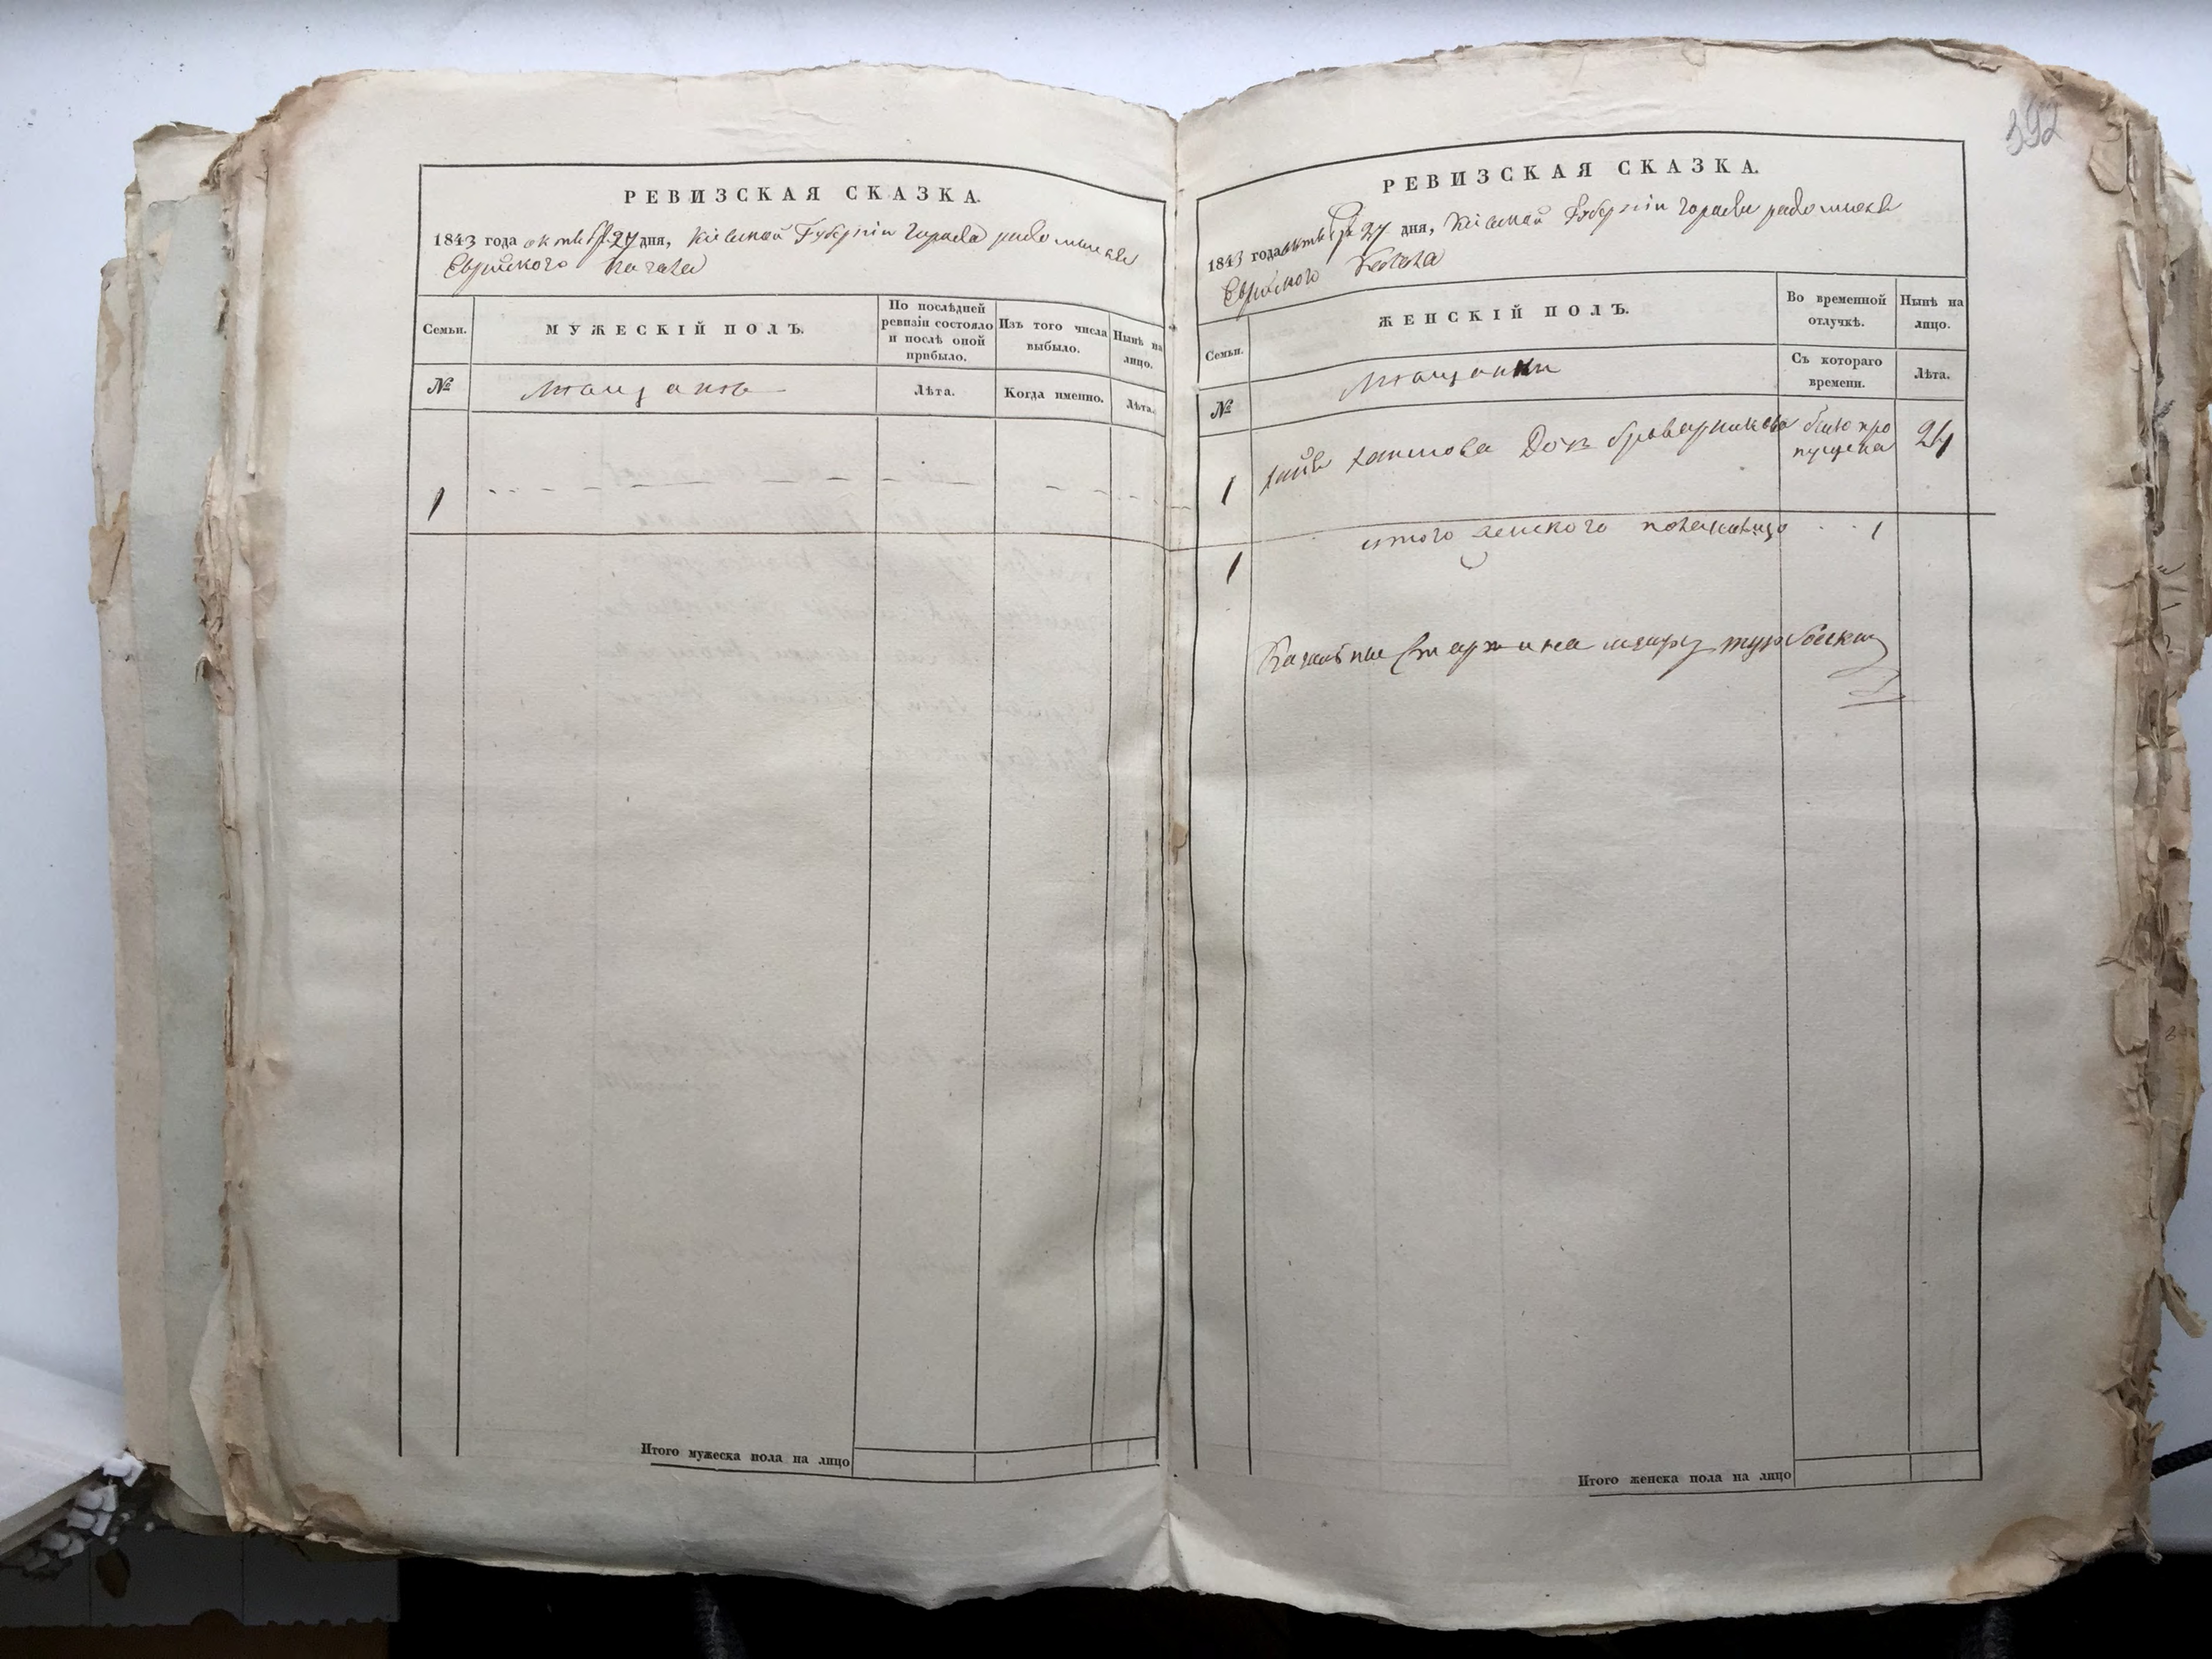 РЕВИЗСКАЯ СКАЗКА.
1843 года октября 27 дня, Кіевской Губерніи Города радомысля
Еврейского Кагала
Семьи.
МУЖЕСКІЙ ПОЛЪ.
По послѣдней ревизіи состояло и послѣ оной прибыло.
Изъ того числа выбыло.
Нынѣ на лицо.
№
мѣщане
Лѣта.
Когда именно.
Лѣта.
1
392
РЕВИЗСКАЯ СКАЗКА.
1843 года октября 27 дня, Кіевской Губерніи Города радомысля
Еврейского Кагала
Семьи.
ЖЕНСКІЙ ПОЛЪ.
Во временной отлучкѣ.
Нынѣ на лицо.
№
мѣщанки
Съ котораго времени.
Лѣта.
1
Хаимова Доч броварникова
было про
пущена
24
1
итого женского пола налицо 1
Кагальные Старшина
Итого мужеска пола на лицо
Итого женска пола на лицо